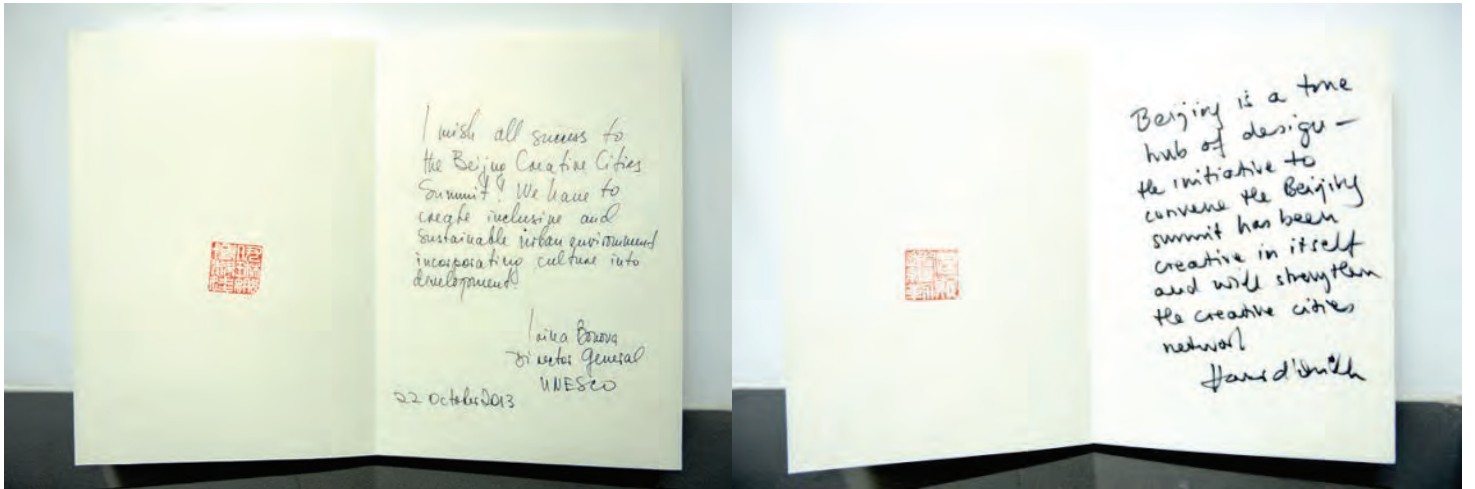 I wish all success to
the Beijing Creative Cities
Summit! We have to
create inclusive and
sustainable urban environment
incorporating culture into
development!
Irina Bokova
Director General
UNESCO
22 October 2013
Beijing is a true
hub of design –
the initiative to
convene the Beijing
summit has been
creative in itself
and will strengthen
the creative cities
network